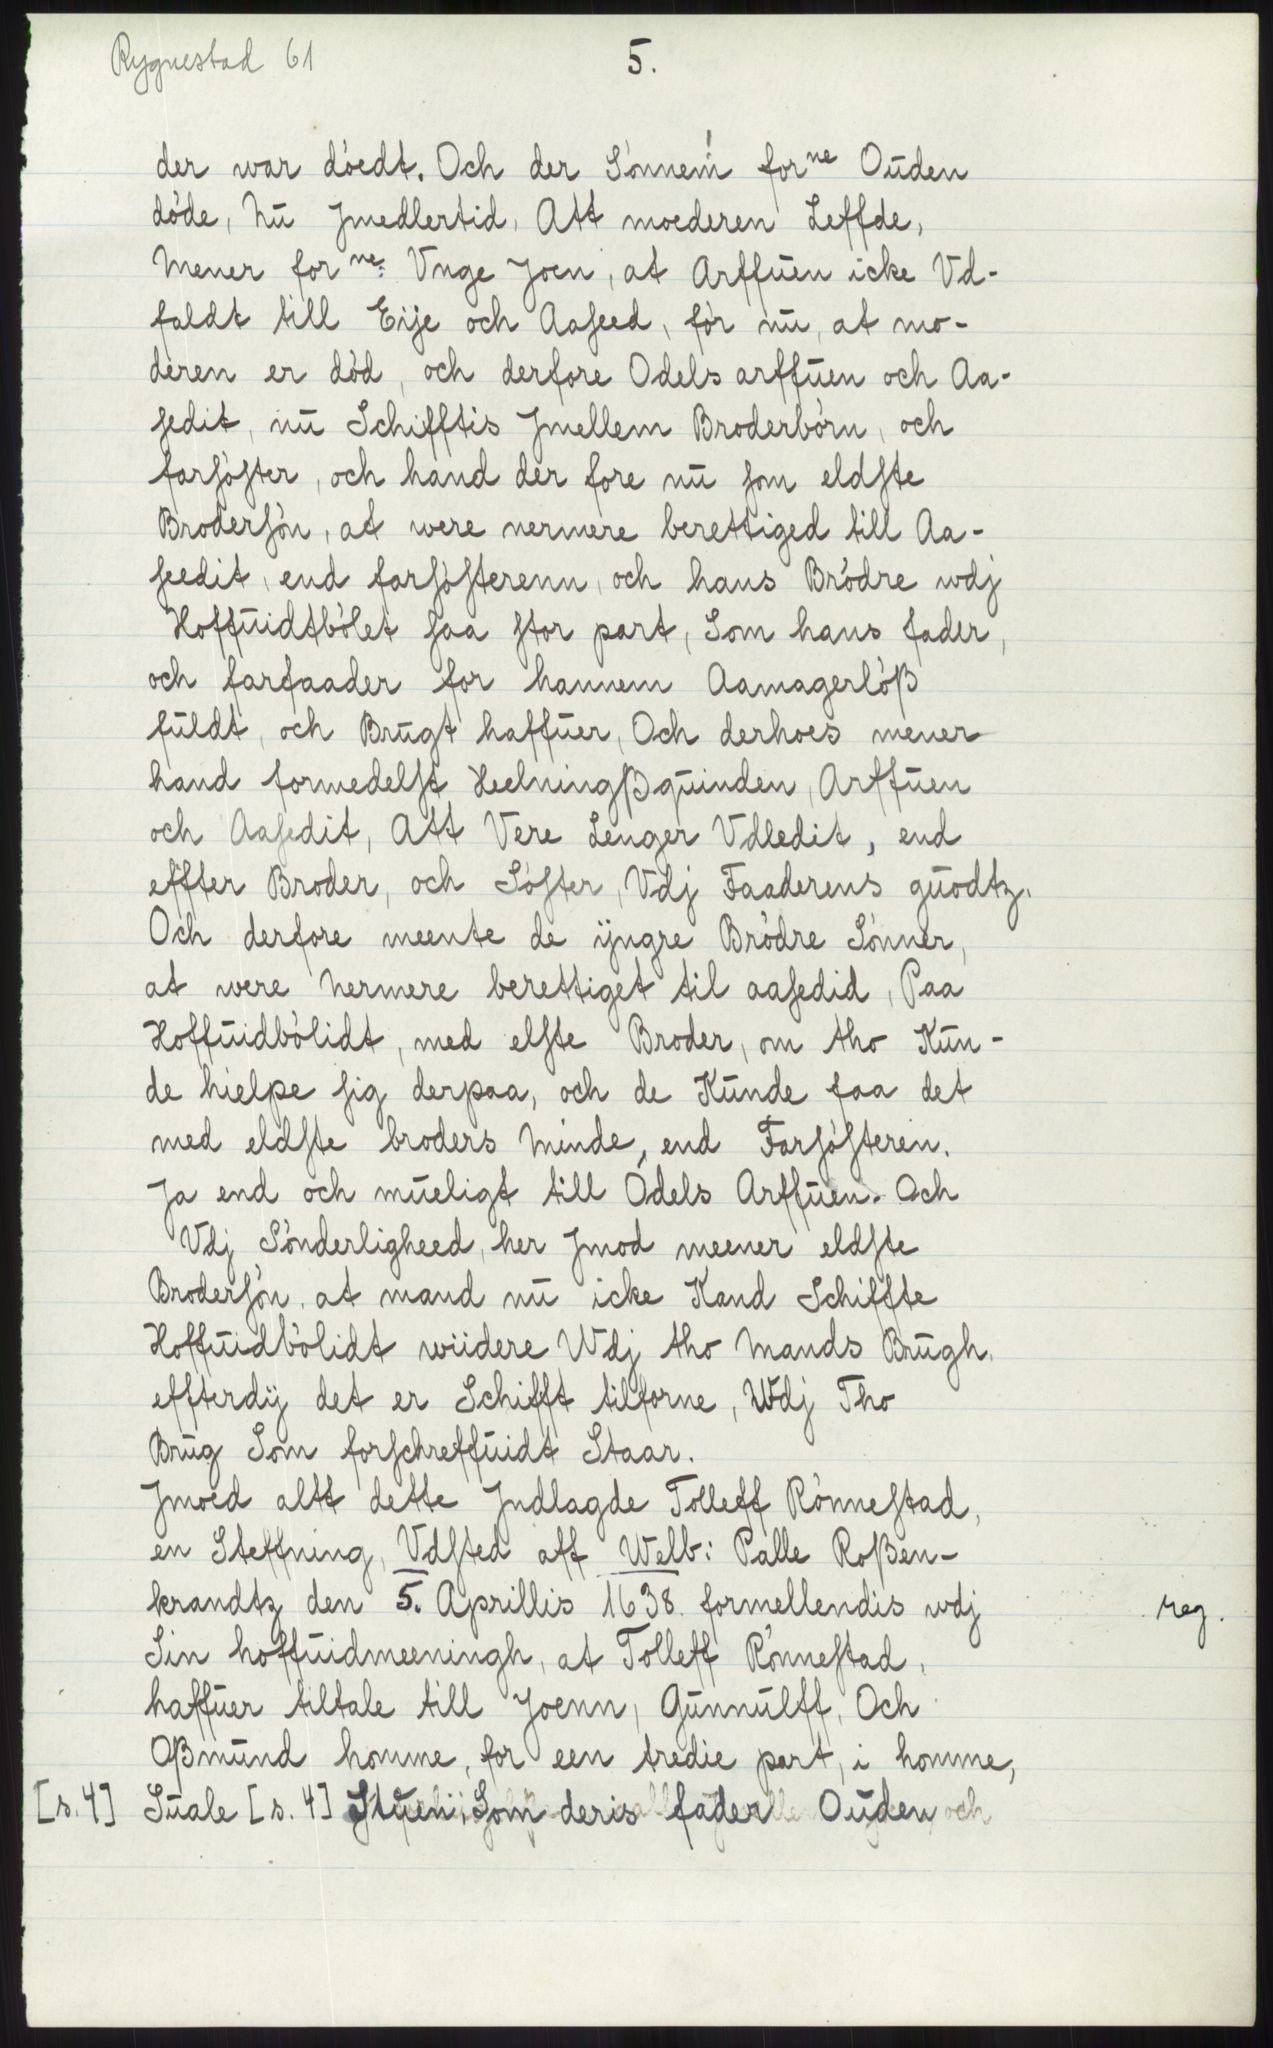 Rygnestad 61
5.
der war döedt. Och der Sönnem! for<sup>ne</sup> Ouden
döde, Nu Jmedlertid, Att moederen Leffde,
Mener for<sup>ne</sup>: Vnge Joen, at Arffuen icke Vd-
faldt till Eije och Aaseed, för nu, at mo-
deren er död, och derfore Odels arffuen och Aa-
sedit, nu Schifftis Jmellem Broderbörn, och
farsöster, och hand der fore nu som eldste
Brodersön, at were nermere berettiged till Aa-
seedit, end farsösterenn, och hans Brödre wdj
Hoffuidtbölet saa stor part, Som hans fader,
och farfaader for hannem Aamagerlöß
fuldt, och Brugt haffuer, Och derhoes mener
hand formedelst Heelningßquinden, Arffuen
och Aasedit, Att Vere Lenger Vdledit, end
effter Broder, och Söster, Vdj Faaderens guodtz.
Och derfore meente de ÿngre Brödre Sönner,
at were Nermere berettiget til aasedid, Paa
Hoffuidbölidt, med elste Broder, om tho Kun-
de hielpe sig derpaa, och de Kunde faa det
med eldste broders Minde, end Farsösteren.
Ja end och mueligt till Odels Arffuen. Och
Vdj Sönderligheed, her Jmod meener eldste
Brodersön, at mand nu icke Kand Schiffte
Hoffuidbölidt wiidere Wdj tho Mands Brugh,
effterdij det er Schifft tilforne, Wdj Tho
Brug Som forschreffuidt Staar.
Jmoed altt dette Jndlagde Tolleff Rönnestad,
en Steffning, Vdsted aff Welb: Palle Roßen-
krandtz den 5. Aprillis 1638. formellendis wdj
reg.
Sin hoffuidmeeningh, at Tolleff Rönnestad,
haffuer tiltale till Joenn, Gunnulff, Och
Oßmund homme, for een tredie part, i homme,
[s. 4] Suale [s. 4] Stuen, Som deris fader Ouden och